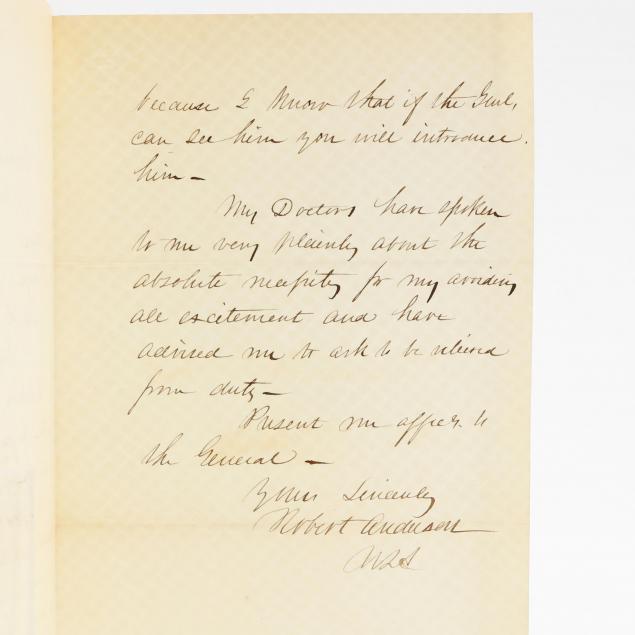 because I know that if the Genl.
can see him you will introduce
him —
My Doctors have spoken
to me very plainly about the
absolute necessity for my avoiding
all excitement and have
advised me to ask to be relieved
from duty —
Present me affecy. to
the General —
Yours Sincerely
Robert Anderson
USA